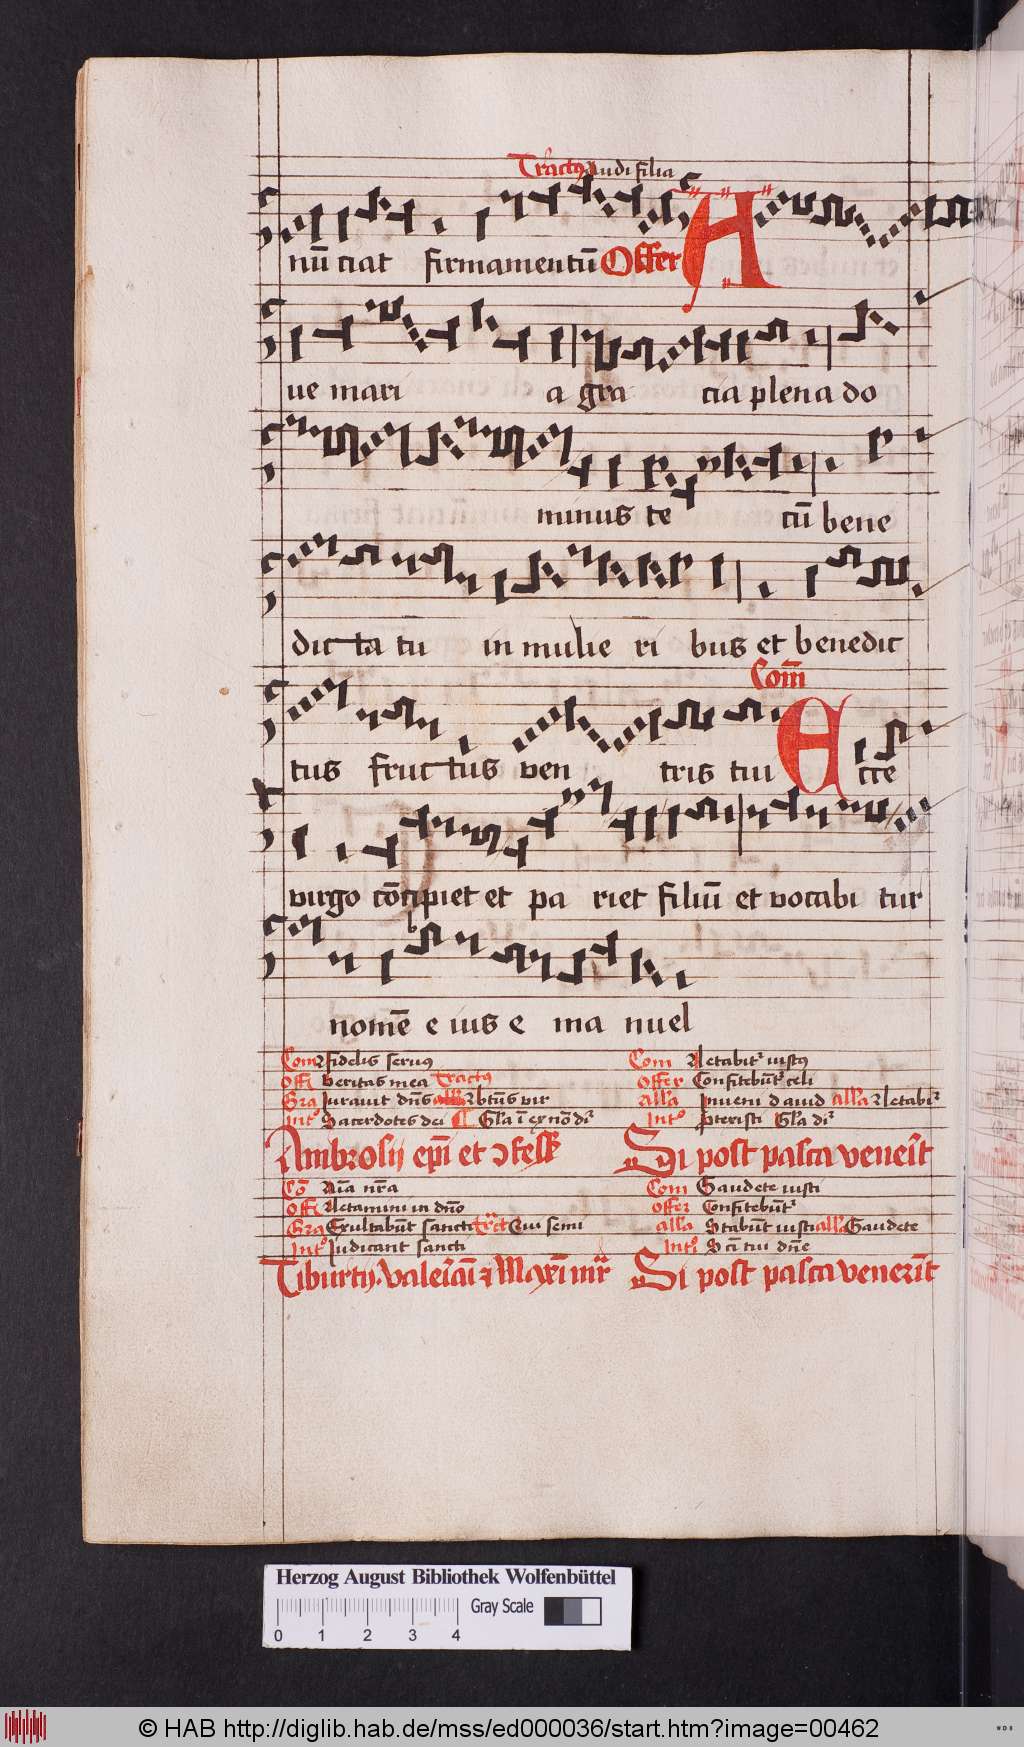 Tractꝰ Audi filia
nū ciat firmamentū Offer A
ue mari a gra cia plena do
minus te cū bene
dic ta tu in mulie ri bus et benedic
Com̄
tus fruc tus ven tris tui Ecce
virgo cōcipiet et pa riet filiū et vocabi tur
nomē e ius e ma nuel
Com fidelis seruꝰ
Offi veritas mea tractꝰ
Gra Jurauit dn̄s btūs vir
Intꝰ Sacerdotes dei Gl̄a ī
Ambrosij ep̄i et ↄfess̄
Cō Aīa nr̄a
Offi Letamini in dn̄o
Gra Exultabūt sancti Qui semi
Intꝰ Judicant sancti
Tiburtij valeriāi Maxīi mr̄
Com Letabitꝰ iustꝰ
Offer Confitebūtꝰ celi
All̄a Jnueni dauid all̄a Letabiꝰ
Intꝰ Gl̄a
Si post pasca veneīt
Com Gaudete iusti
Offer Confitebūtꝰ
all̄a Stabūt iusti all̄a Gaudete
Intꝰ Scī tui dn̄e
Si post pasca venerīt
Herzog August Bibliothek Wolfenbüttel
Gray Scale
0 1 2 3 4
© HAB http://diglib.hab.de/mss/ed000036/start.htm?image=00462